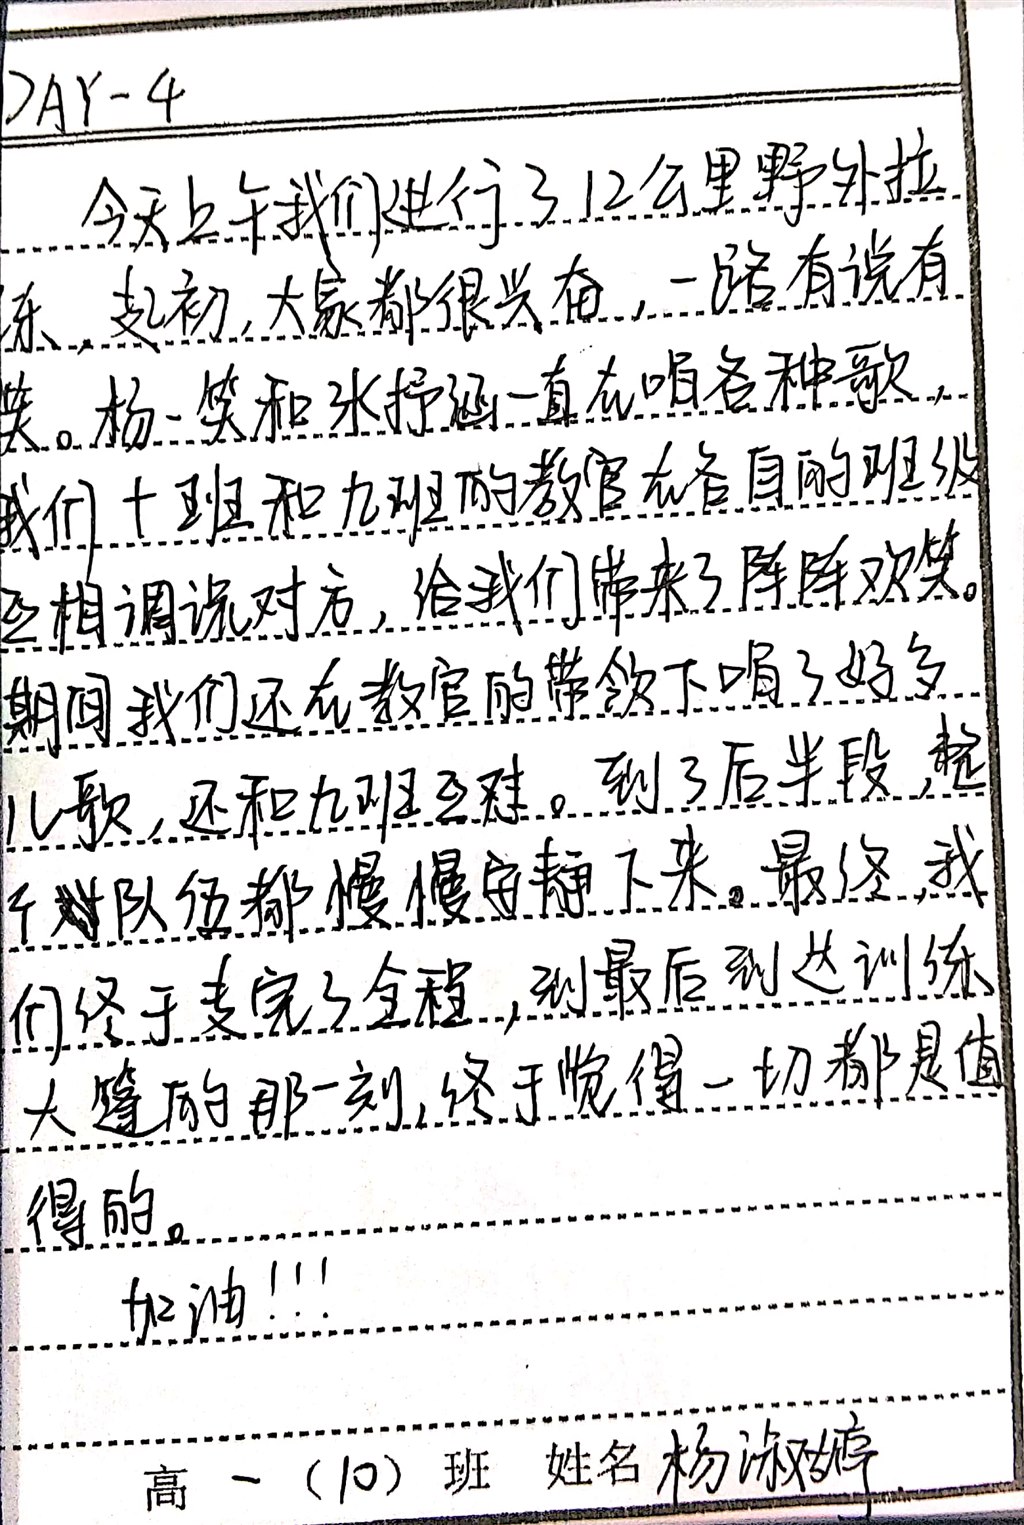 DAY-4
今天上午我们进行了12公里野外拉
练,起初,大家都很兴奋,一路有说有
笑。杨一笑和水抒涵一直在唱各种歌,
我们十班和九班的教官在各自的班级
互相调侃对方,给我们带来了阵阵欢笑。
期间我们还在教官的带领下唱了好多
儿歌,还和九班互怼。到了后半段,整
个队伍都慢慢安静下来。最终,我
们终于走完了全程,到最后到达训练
大篷的那一刻,终于觉得一切都是值
得的。
加油!!!
高一(10)班 姓名 杨淑婷